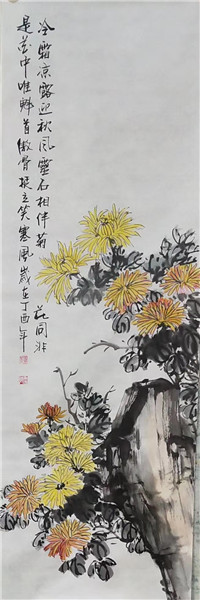 冷霜凉露迎秋风灵石相伴菊
是花中唯魁首傲骨挺立笑寒风岁在丁酉年
花同非